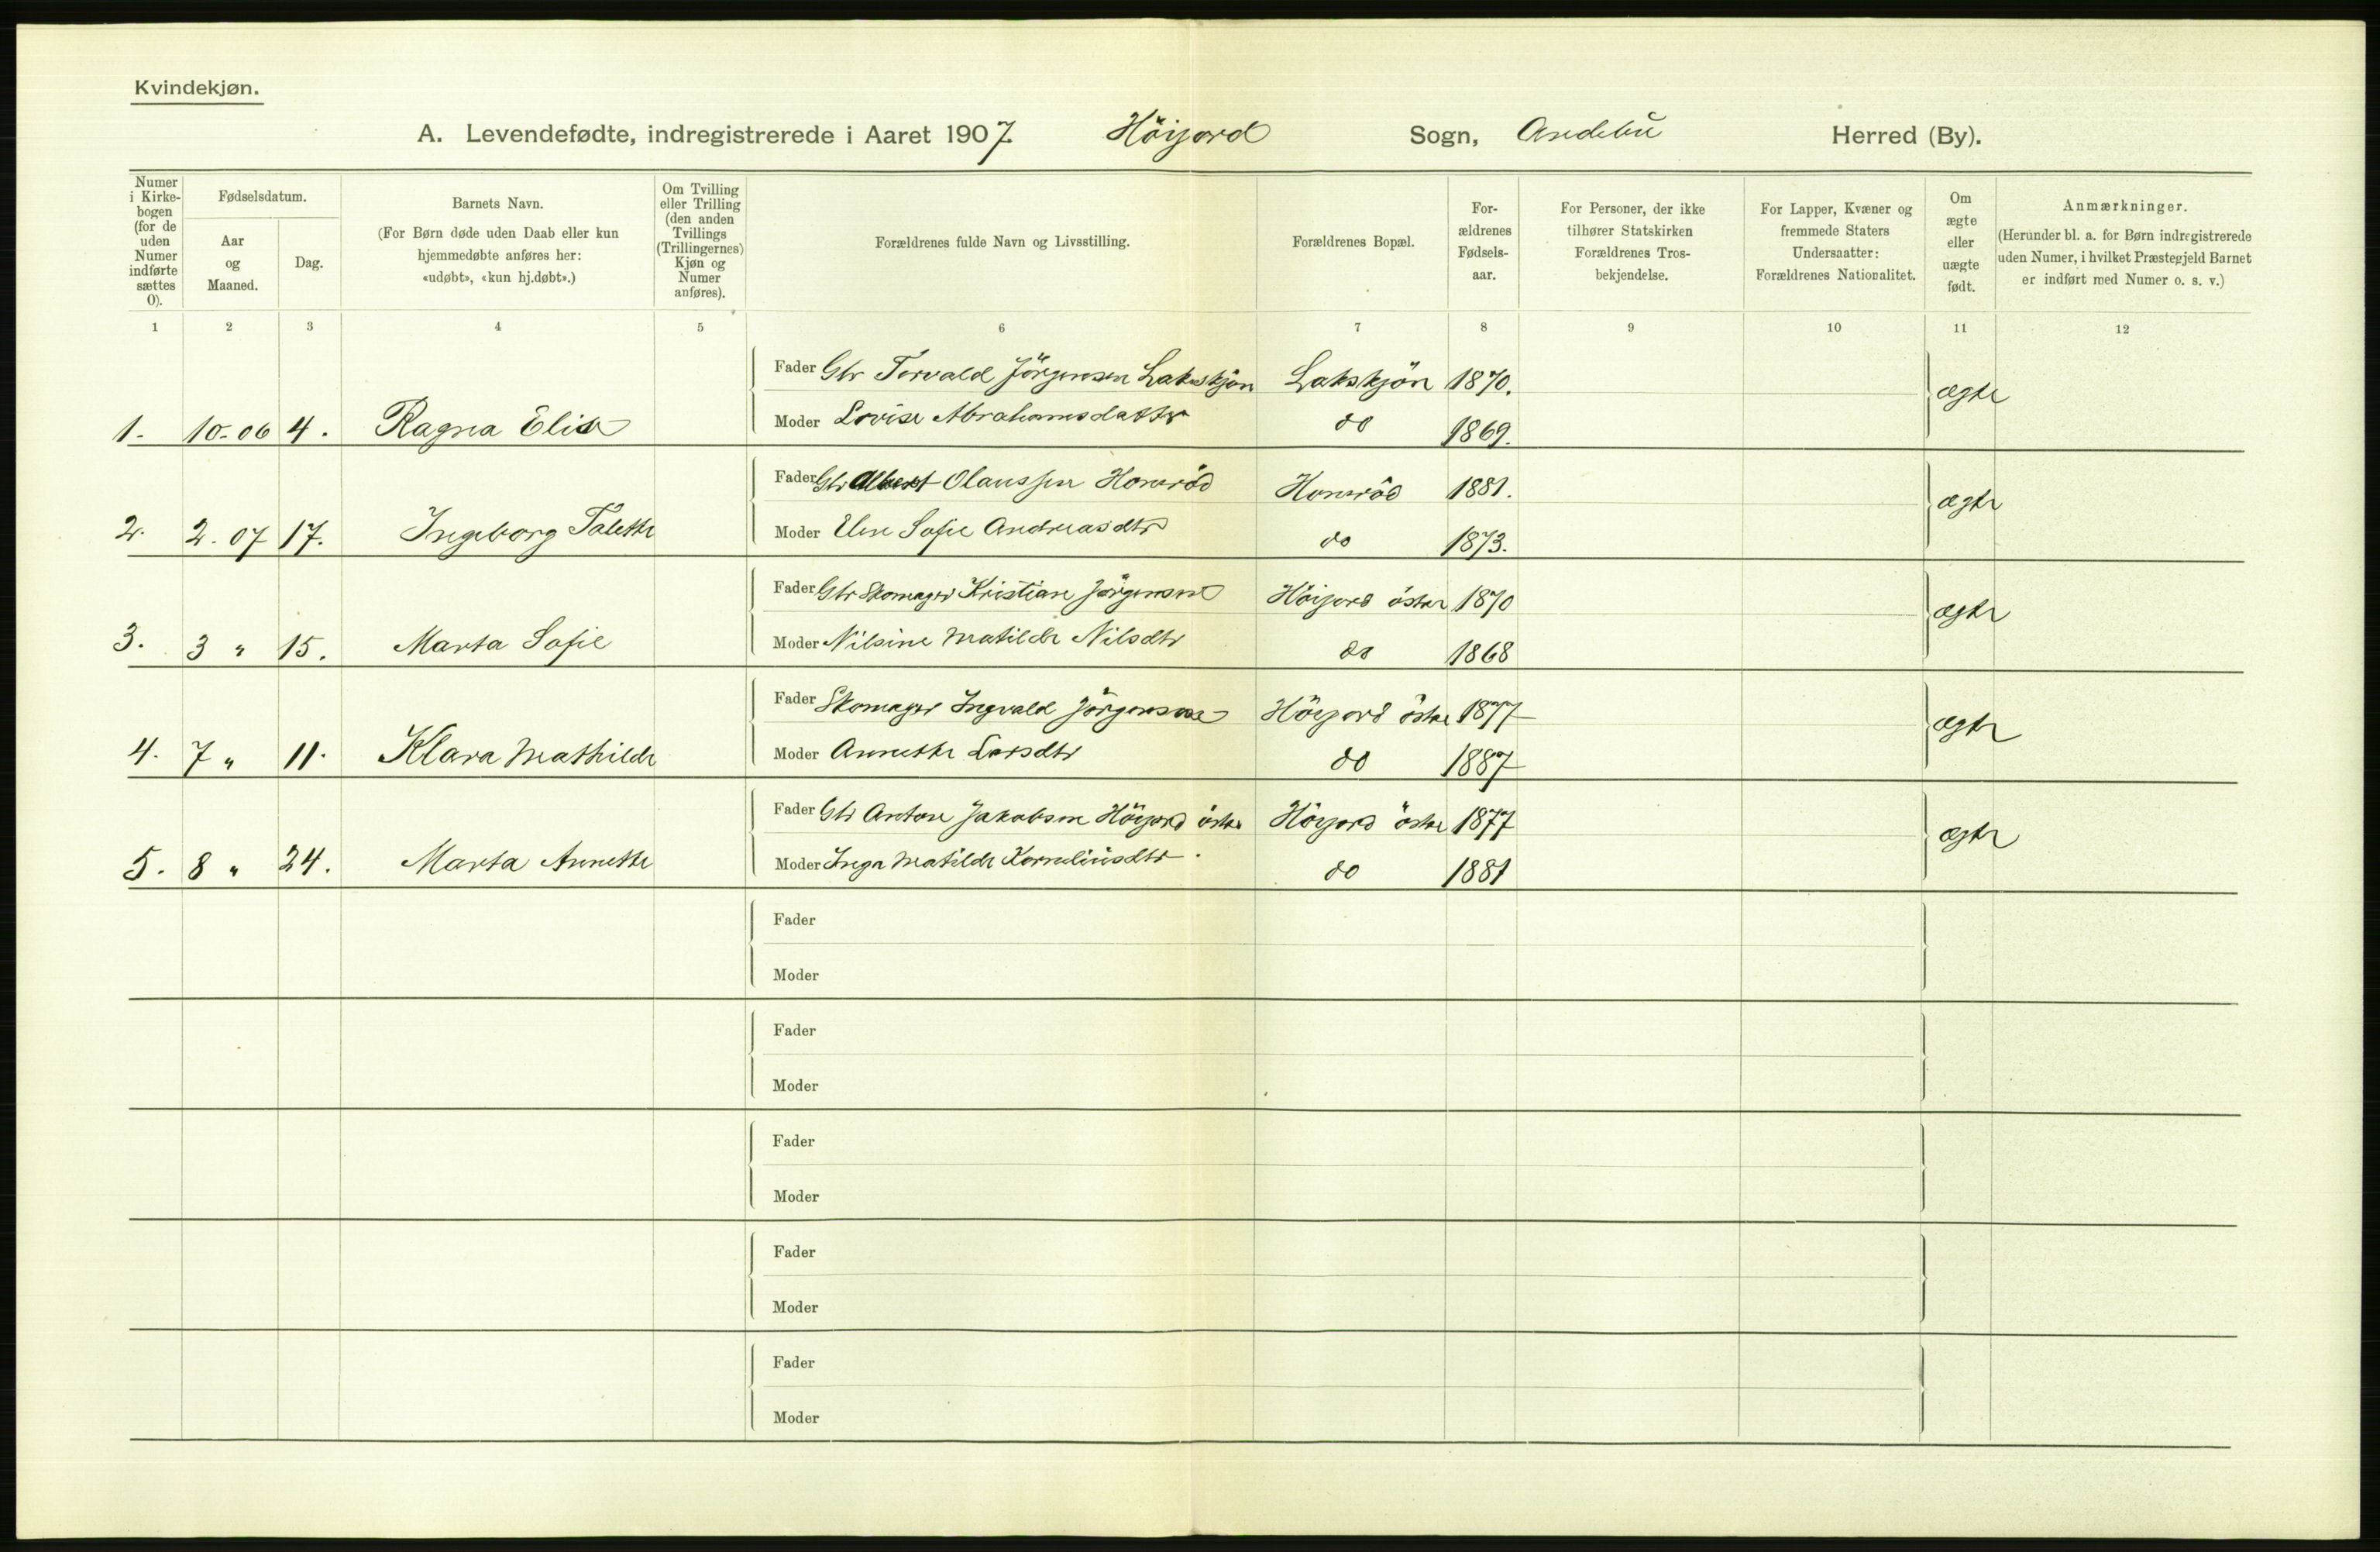 Kvindekjøn.
A. Levendefødte, indregistrerede i Aaret 1907. Höijord Sogn, Andebu Herred (By).
Numer i Kirkebogen (for de uden Numer indførte sættes 0).
Fødselsdatum.
Aar og Maaned.
Dag.
Barnets Navn.
(For Børn døde uden Daab eller kun hjemmedøbte anføres her: «udøbt», «kun hj.døbt».)
Om Tvilling eller Trilling (den anden Tvillings (Trillingernes) Kjøn og Numer anføres).
Forældrenes fulde Navn og Livsstilling.
Forældrenes Bopæl.
Forældrenes Fødselsaar.
For Personer, der ikke tilhører Statskirken Forældrenes Trosbekjendelse.
For Lapper, Kvæner og fremmede Staters Undersaatter: Forældrenes Nationalitet.
Om ægte eller uægte født.
Anmærkninger.
(Herunder bl. a. for Børn indregistrerede uden Numer, i hvilket Præstegjeld Barnet er indført med Numer o. s. v.)
1 2 3 4 5 6 7 8 9 10 11 12
Fader Gbr Torvald Jörgensen Lakskjön Lakskjön 1870. ægte
1. 10-06 4. Ragna Elise Moder Lovise Abrahamsdatter do 1869.
Fader Gbr Albert Olaussen Honeröd Honeröd 1881. ægte
2. 2. 07 17. Ingeborg Talette Moder Elen Sofie Andreasdtr do 1873.
Fader Gbr Skomager Kristian Jörgensen Höijord östre 1870 ægte
3. 3 " 15. Marta Sofie Moder Nilsine Matilde Nilsdtr do 1868
Fader Skomager Ingvald Jörgensen Höijord östre 1877 ægte
4. 7 " 11. Klara Mathilde Moder Annethe Larsdtr do 1887
Fader Gbr Anton Jakobsen Höijord östre Höijord östre 1877 ægte
5. 8 " 24. Marta Annette Moder Inga Matilde Korneliusdtr. do 1881
Fader
Moder
Fader
Moder
Fader
Moder
Fader
Moder
Fader
Moder